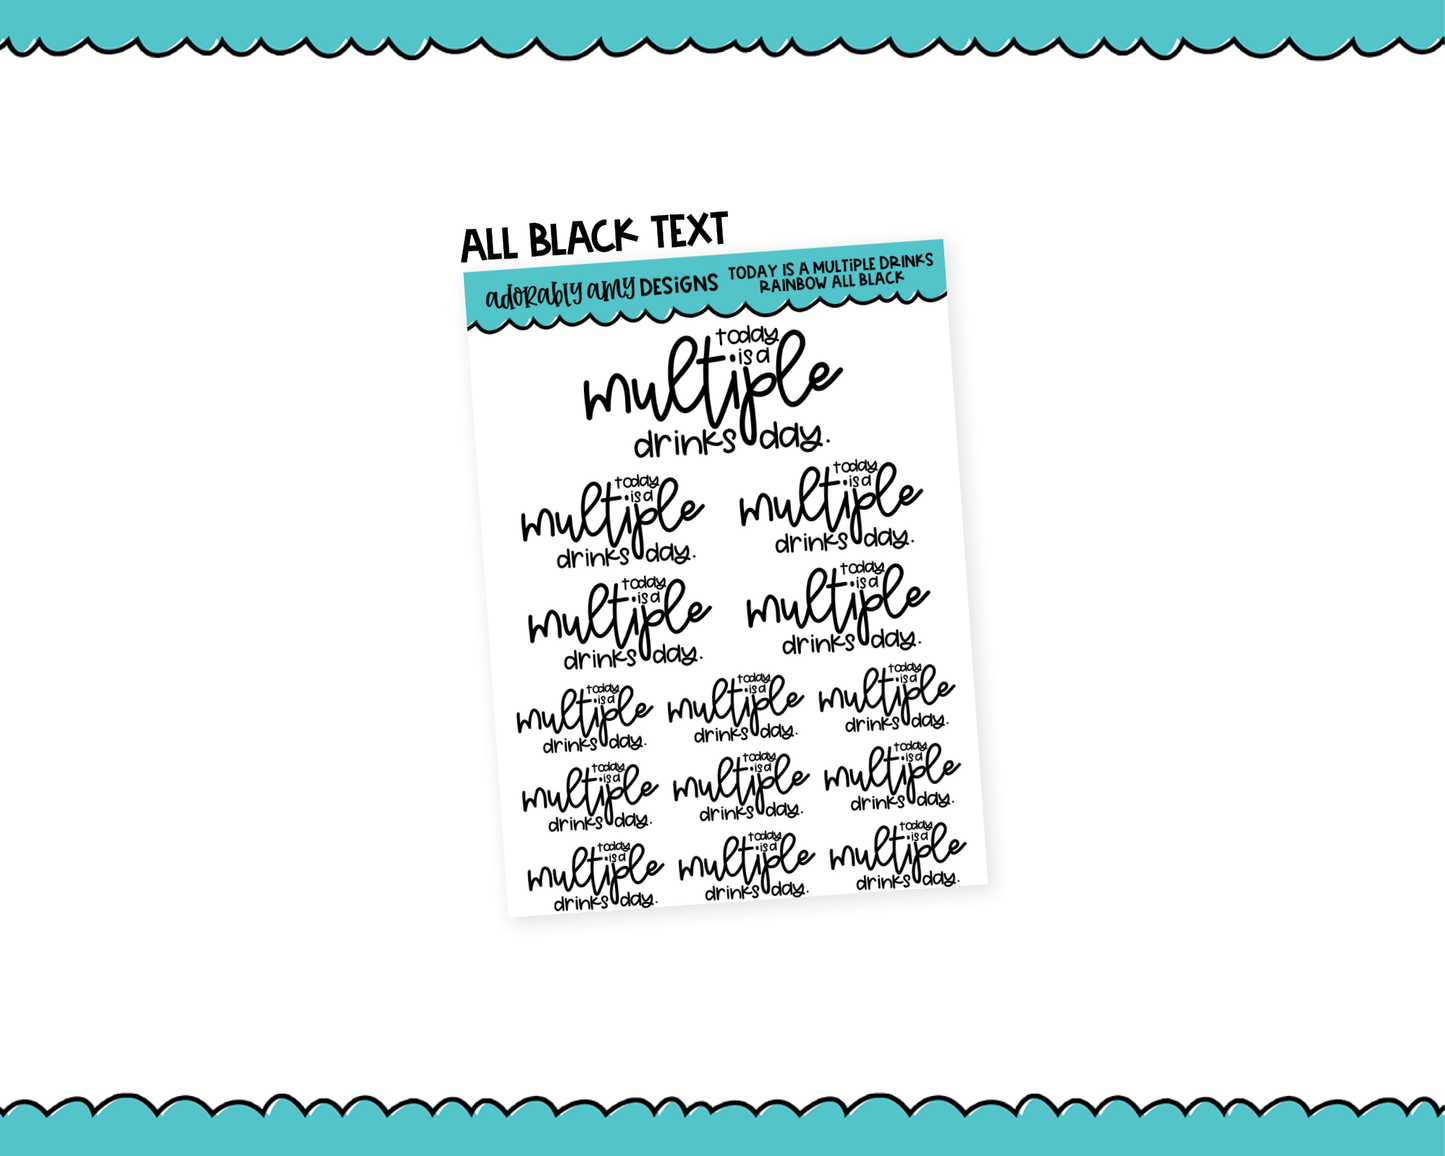 ALL BLACK TEXT
adorably amy DESIGNS
TODAY IS A MULTIPLE DRINKS
RAINBOW ALL BLACK
today
is a
multiple
drinks day.
today
is a
multiple
drinks day.
today
is a
multiple
drinks day.
today
is a
multiple
drinks day.
today
is a
multiple
drinks day.
today
is a
multiple
drinks day.
today
is a
multiple
drinks day.
today
is a
multiple
drinks day.
today
is a
multiple
drinks day.
today
is a
multiple
drinks day.
today
is a
multiple
drinks day.
today
is a
multiple
drinks day.
today
is a
multiple
drinks day.
today
is a
multiple
drinks day.